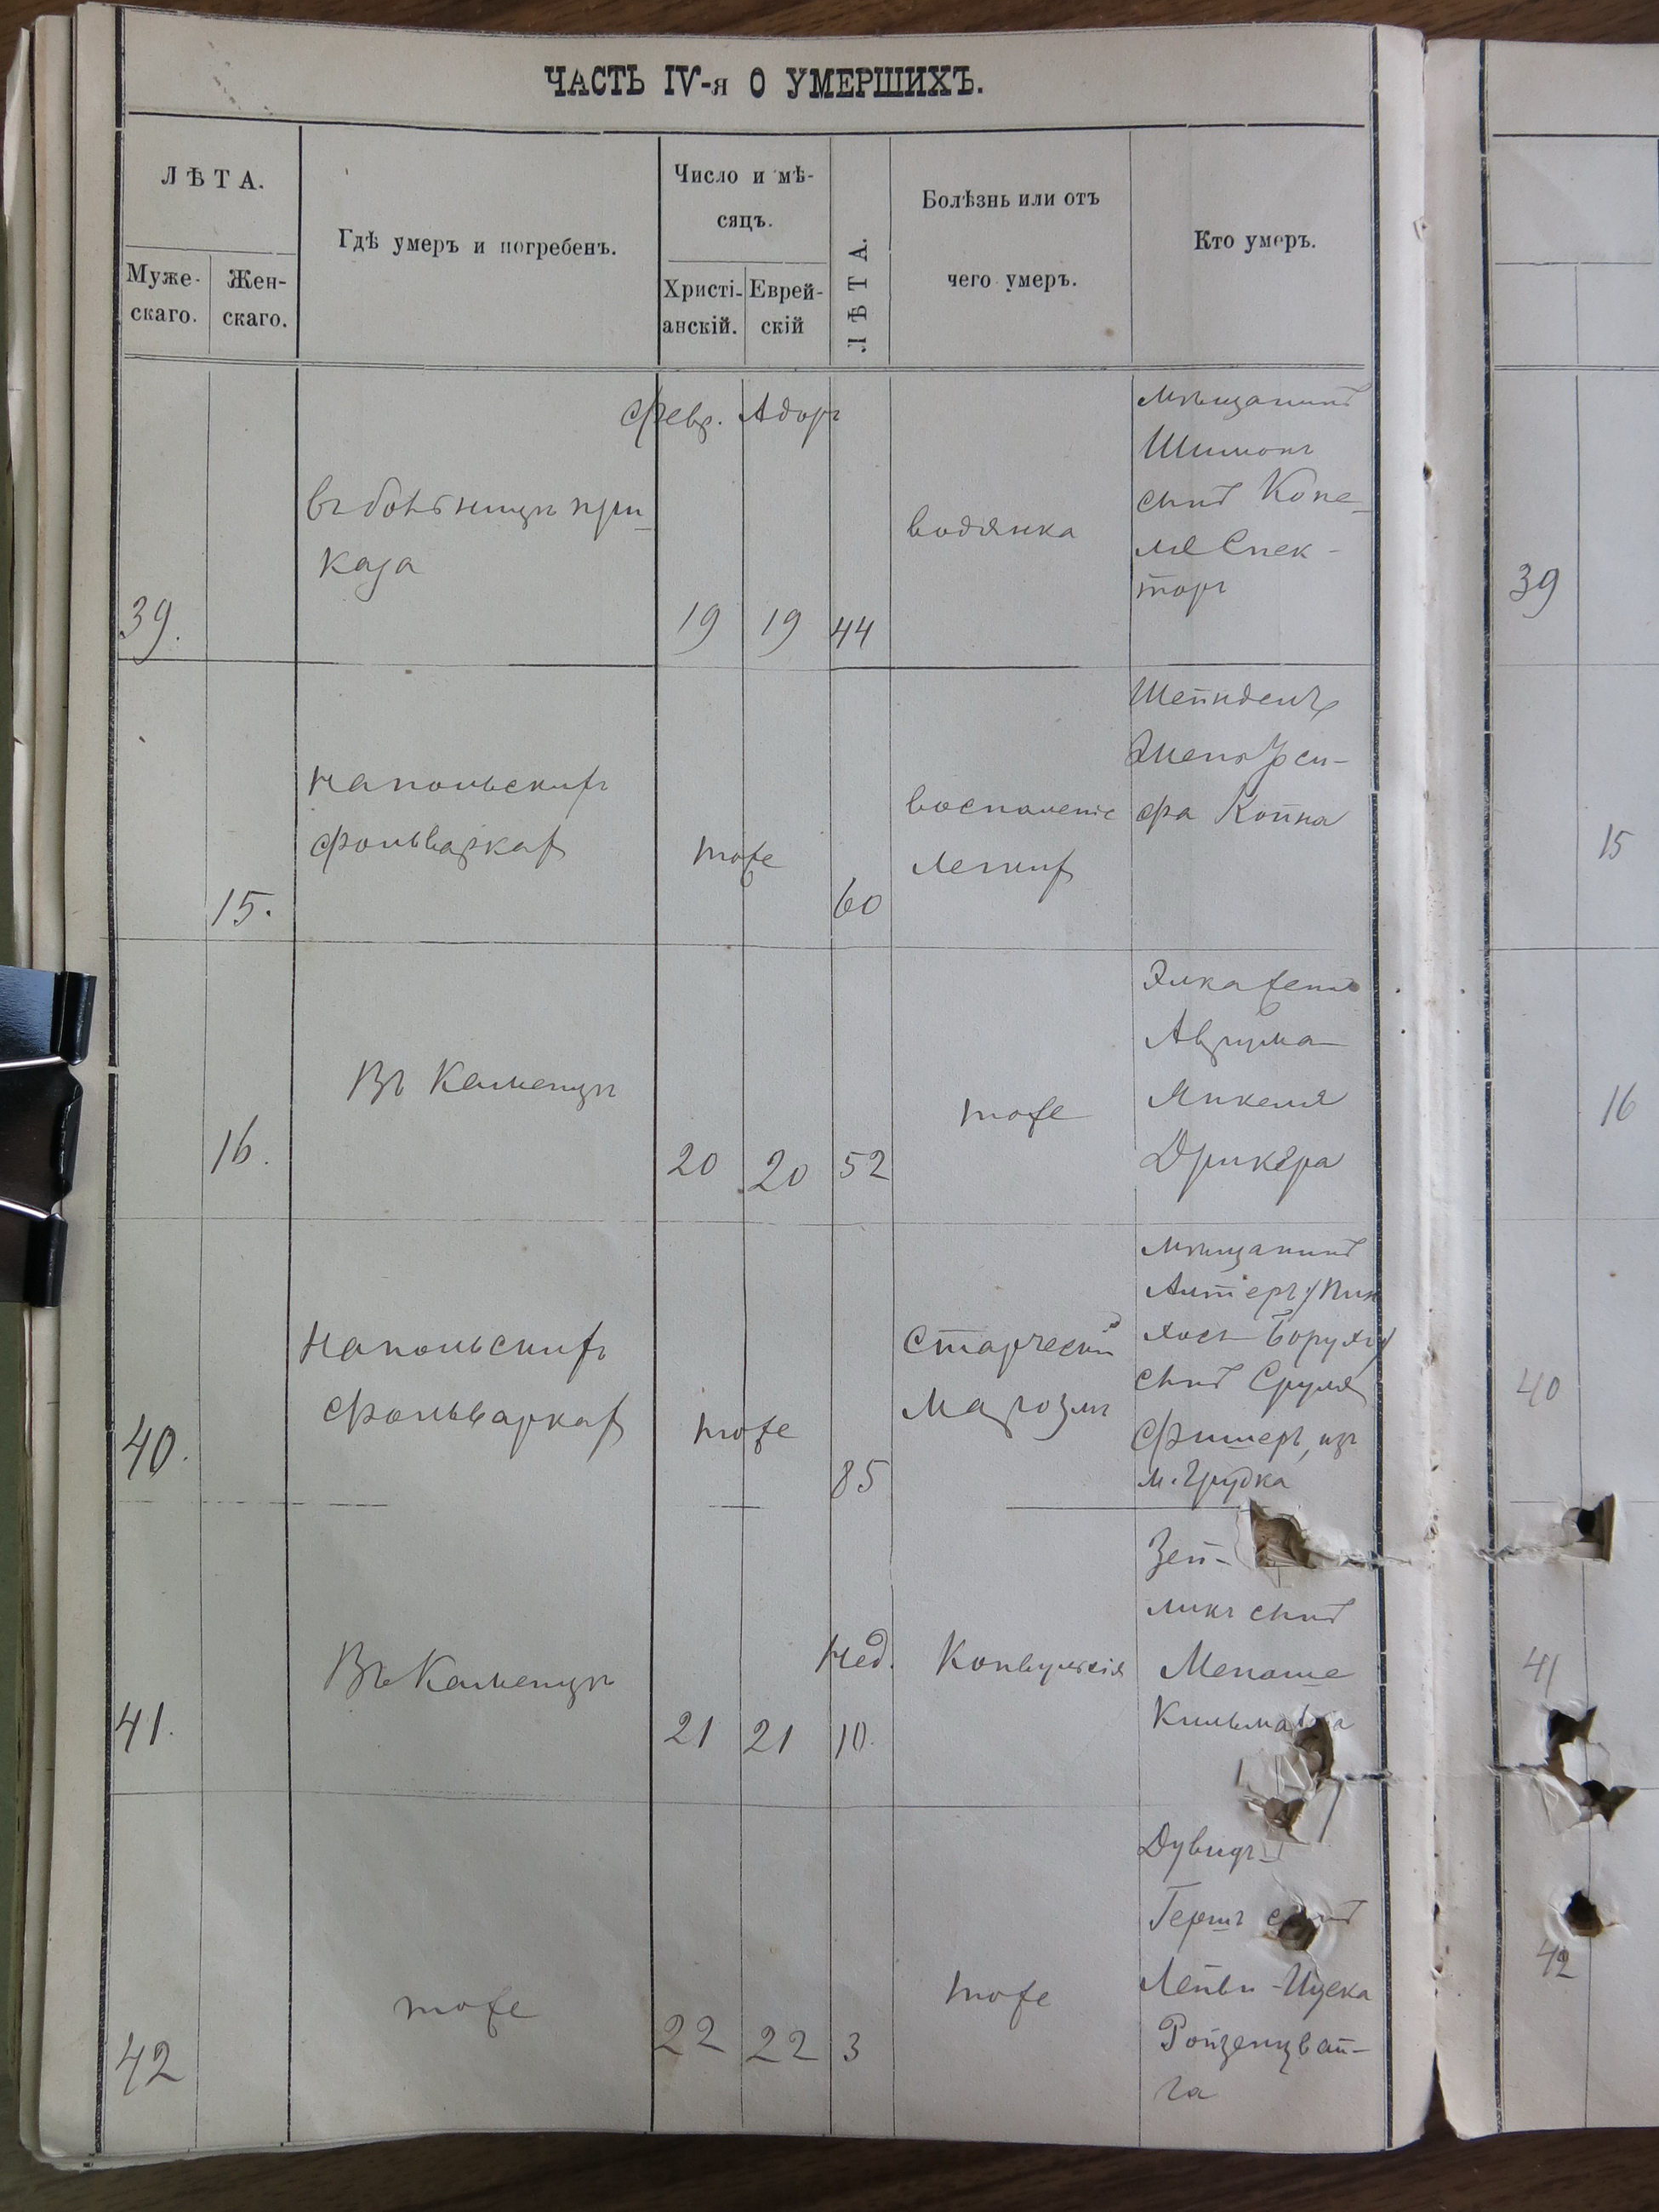 ЧАСТЬ IV-я О УМЕРШИХЪ.
ЛѢТА.
Муже-
скаго.
Жен-
скаго.
Гдѣ умеръ и погребенъ.
Число и мѣ-
сяцъ.
Христі-
анскій.
Еврей-
скій
ЛѢТА.
Болѣзнь или отъ
чего умеръ.
Кто умеръ.
Февр. Адаръ
39.
въ больницѣ при-
каза
19 19 44
водянка
мѣщанинъ
Шимонъ
сынъ Копе-
ля Спек-
торъ
39
15.
На польскихъ
фольваркахъ
тоже
60
воспаленіе
легкихъ
Шейндель
жена
Койна
15
16.
Въ Каменцѣ
20 20 52
тоже
Элка жена
Аврума
Янкеля
Дрикера
16
40.
На польскихъ
фольваркахъ
тоже
85
Старческій
маразмъ
мѣщанинъ
Алтеръ /Пин
хосъ Борухъ/
сынъ Сруля
Фишеръ, изъ
м. Грудка
40
41.
Въ Каменцѣ
21 21
Нед.
10.
Конвульсія
Зей-
ликъ сынъ
Менаше
41
42
тоже
22 22 3
тоже
Дувидъ-
Гершъ сынъ
Лейви-Ицека
Ройзенцвай-
га
42